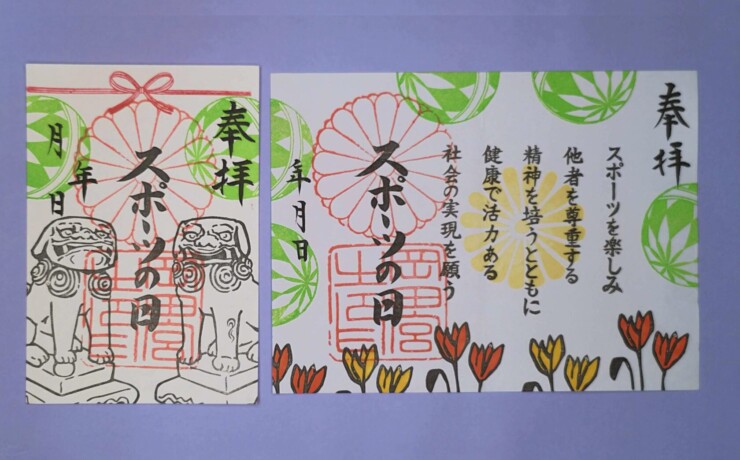 奉拝
スポーツの日
年
月
日
奉拝
スポーツを楽しみ
他者を尊重する
精神を培うとともに
健康で活力ある
社会の実現を願う
スポーツの日
年月日